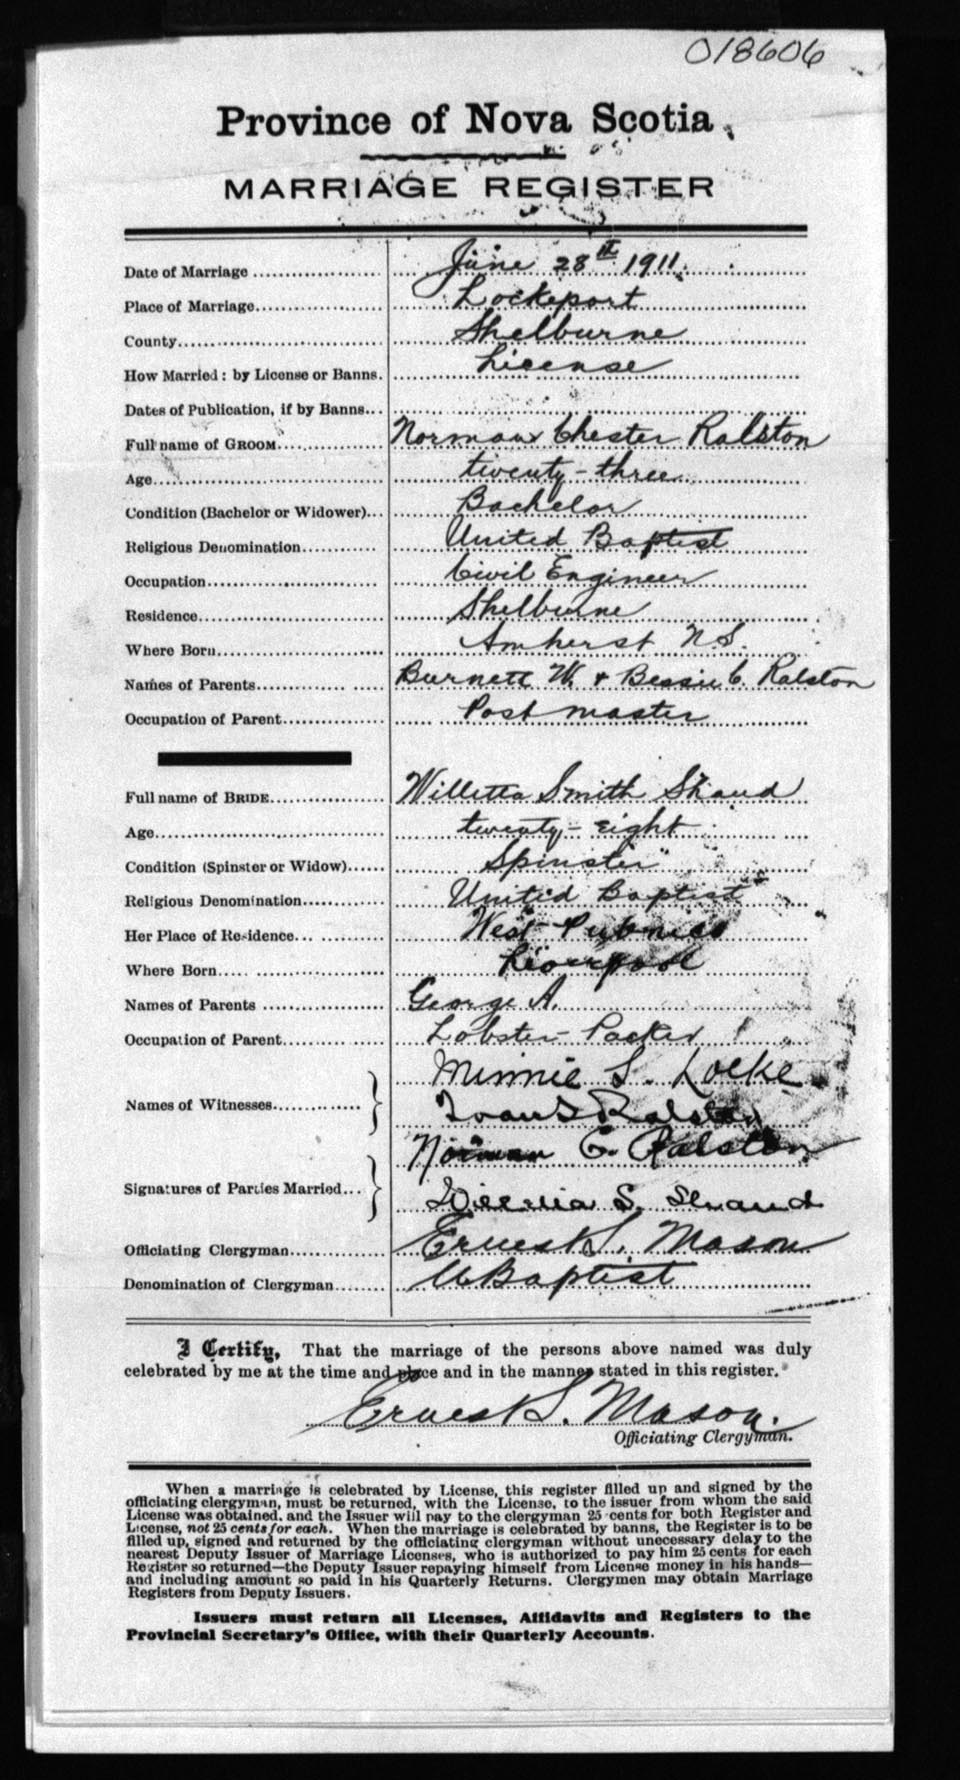 018606
Province of Nova Scotia
MARRIAGE REGISTER
Date of Marriage June 28th 1911.
Place of Marriage Lockeport
County Shelburne
How Married: by License or Banns. License
Dates of Publication, if by Banns
Full name of GROOM Norman Chester Ralston
Age twenty-three
Condition (Bachelor or Widower) Bachelor
Religious Denomination United Baptist
Occupation Civil Engineer
Residence Shelburne
Where Born Amherst N.S.
Names of Parents Burnett W. + Bessie C. Ralston
Occupation of Parent Post master
Full name of BRIDE Willetta Smith Shand
Age twenty-eight
Condition (Spinster or Widow) Spinster
Religious Denomination United Baptist
Her Place of Residence West Pubnico
Where Born Liverpool
Names of Parents George A.
Occupation of Parent Lobster-Packer
Minnie S. Locke
Names of Witnesses
Ralston
Norman C. Ralston
Signatures of Parties Married
S. Shand
Officiating Clergyman Ernest S. Mason
Denomination of Clergyman U Baptist
I Certify, That the marriage of the persons above named was duly
celebrated by me at the time and place and in the manner stated in this register.
Ernest S. Mason.
Officiating Clergyman.
When a marriage is celebrated by License, this register filled up and signed by the
officiating clergyman, must be returned, with the License, to the issuer from whom the said
License was obtained, and the Issuer will pay to the clergyman 25 cents for both Register and
License, not 25 cents for each. When the marriage is celebrated by banns, the Register is to be
filled up, signed and returned by the officiating clergyman without unecessary delay to the
nearest Deputy Issuer of Marriage Licenses, who is authorized to pay him 25 cents for each
Register so returned—the Deputy Issuer repaying himself from License money in his hands—
and including amount so paid in his Quarterly Returns. Clergymen may obtain Marriage
Registers from Deputy Issuers.
Issuers must return all Licenses, Affidavits and Registers to the
Provincial Secretary's Office, with their Quarterly Accounts.